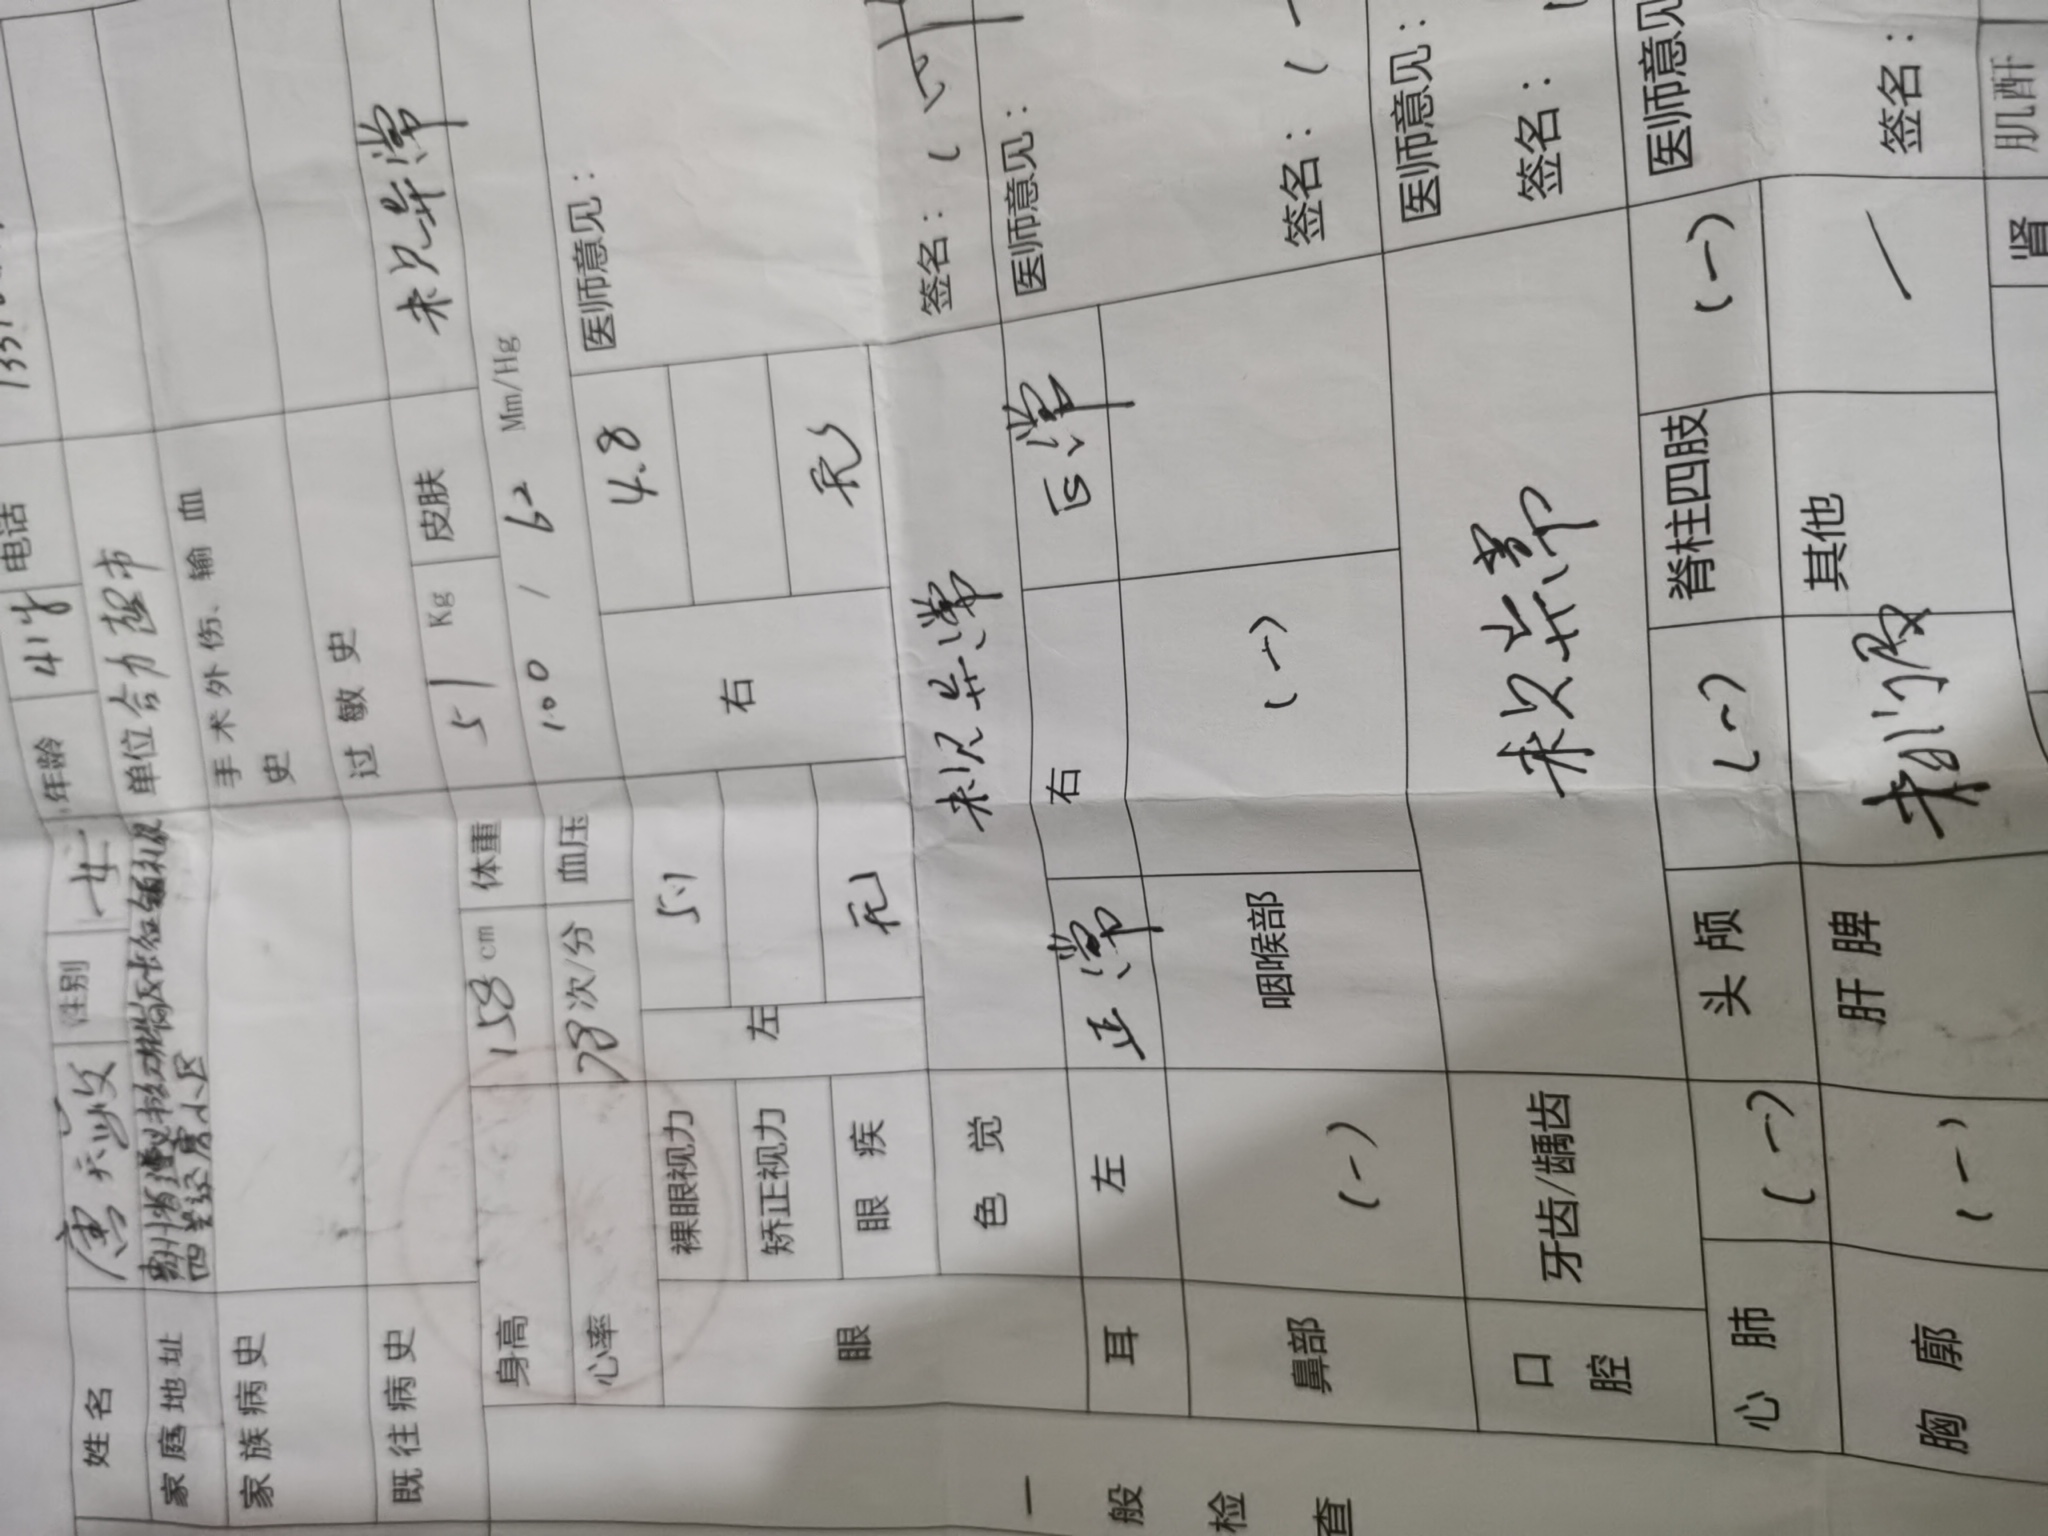 姓名 唐 性别 女 年龄 41岁 电话
家庭地址 四 小区 单位 合力超市
家族病史 手术外伤、输血史
既往病史 过敏史
身高 158 cm 体重 51 Kg 皮肤 未见异常
心率 78次/分 血压 100 / 62 Mm/Hg
一般检查
眼 裸眼视力 左 5.1 右 4.8 医师意见:
矫正视力
眼疾 无 无
色觉 未见异常 签名:
耳 左 正常 右 正常 医师意见:
鼻部 (-) 咽喉部 (-) 签名:
口腔 牙齿/龋齿 未见异常 医师意见:
签名:
心肺 (-) 头颅 (-) 脊柱四肢 (-) 医师意见
胸廓 (-) 肝脾 其他 / 签名:
肾 肌酐